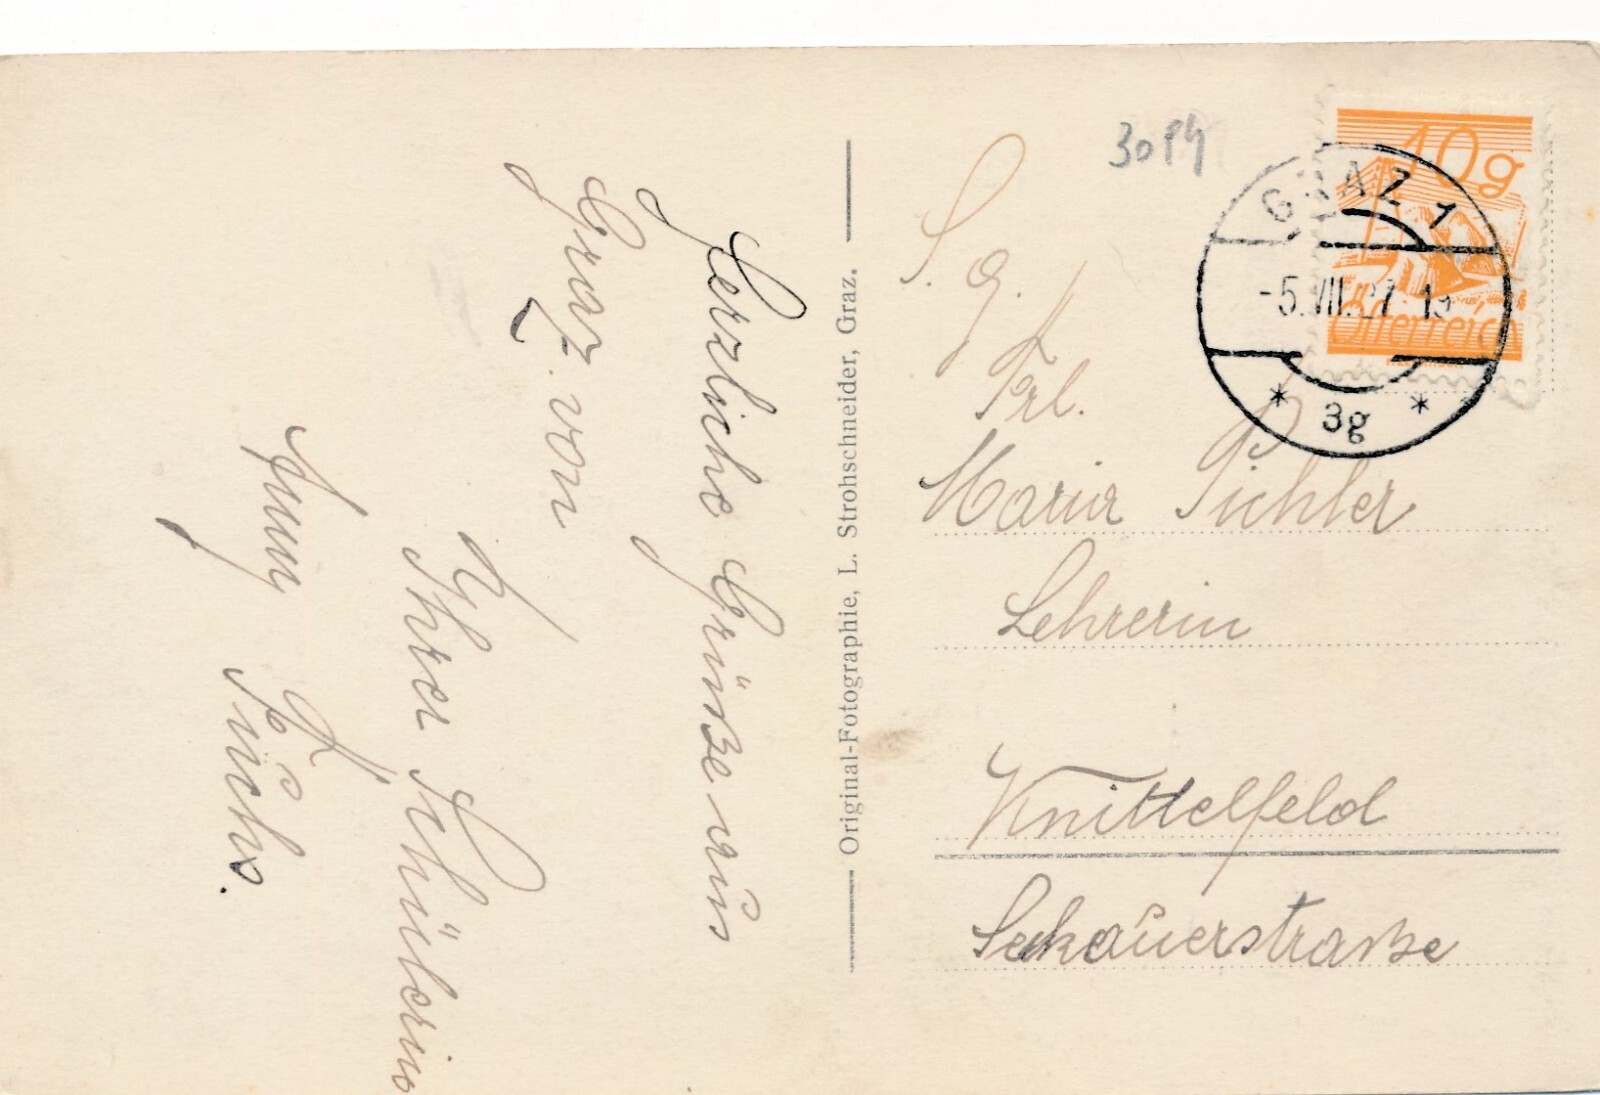 Herzliche Grüße aus
Graz von
Ihrer Schülerin
Fuchs.
Original-Fotografie, L. Strohschneider, Graz.
30 Pf
10g
Österreich
GRAZ 1
-5.VII.27
* 3g *
S. g.
Frl.
Maria Pichler
Lehrerin
Knittelfeld
Sekauerstraße